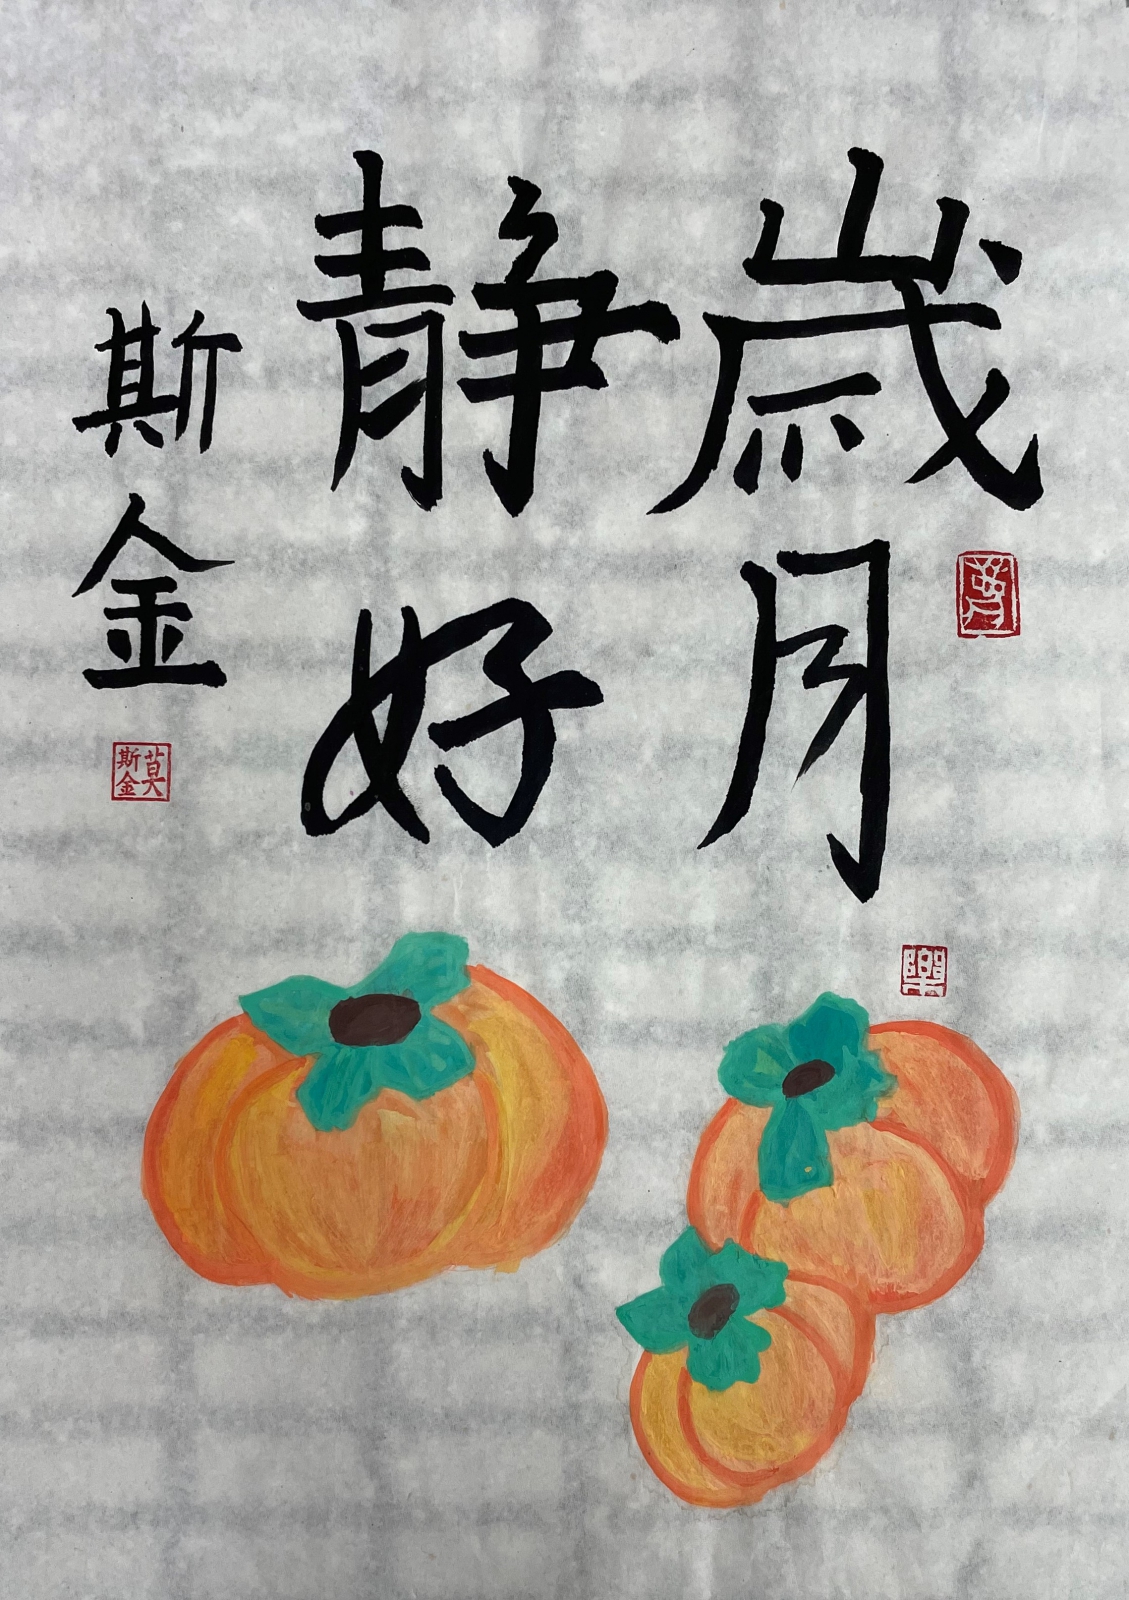 歲月
靜好
斯金
莫斯金
樂